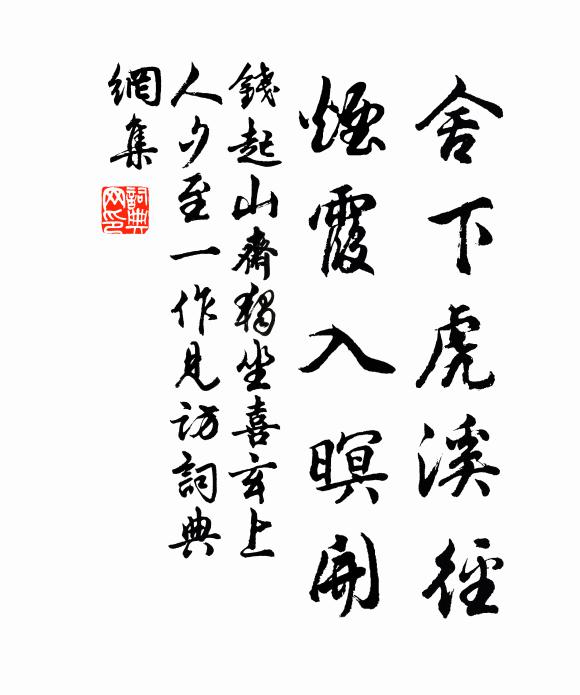 舍下虎溪徑
煙霞入暝開
錢起山齋獨坐喜玄上
人夕至一作見訪詞典
網集
詞典網印